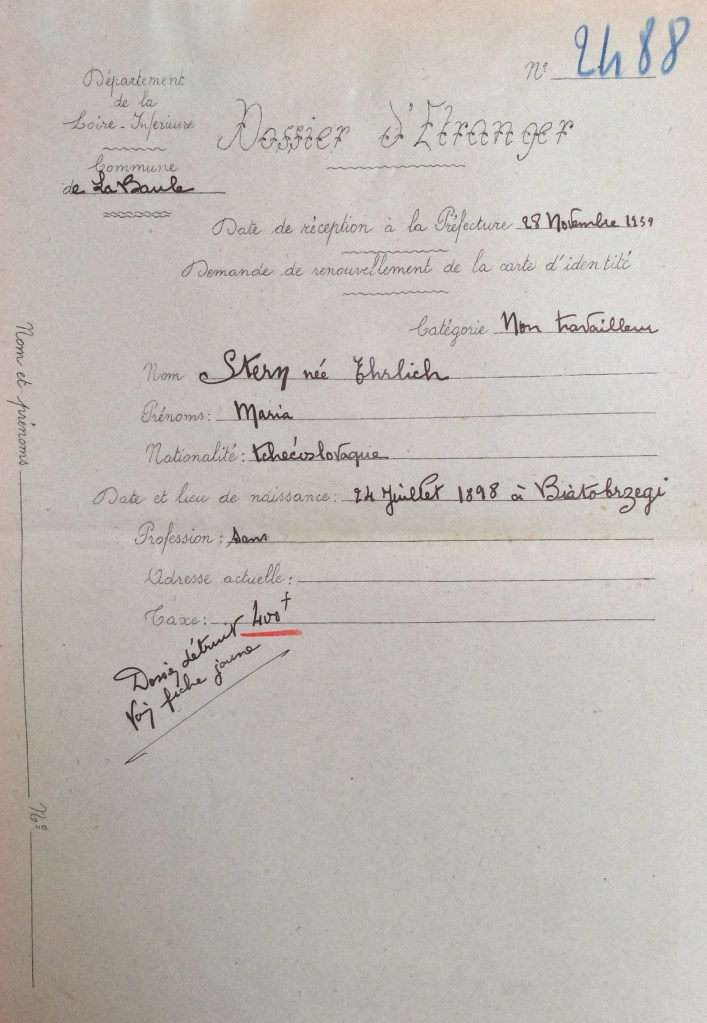 Département
de la
Loire-Inférieure
Commune
de La Baule
Nº 2488
Dossier d'Etranger
Date de réception à la Préfecture 28 Novembre 1939
Demande de renouvellement de la carte d'identité
Catégorie Non travailleur
Nom Stern née Ehrlich
Prénoms: Maria
Nationalité: tchécoslovaque
Date et lieu de naissance: 24 Juillet 1898 à Biatobrzegi
Profession: sans
Adresse actuelle:
Taxe: 400 f
Dossier détruit
Voir fiche jaune
Nom et prénoms
Nº